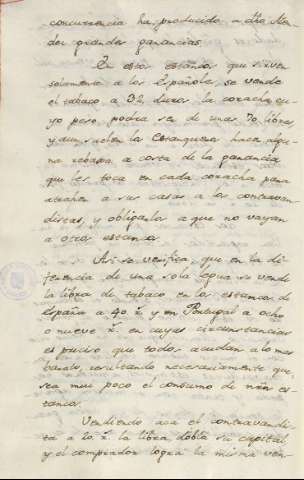 concurrencia ha producido a dho
der grandes ganancias.
En estos estancos que sirven
solamente a los Españoles, se vende
el tabaco a 32 duros la coracha, cu-
yo peso podrá ser de unas 70 libras,
y aun suelen las Estanqueras hacer algu-
na rebaxa a costa de la ganancia
que les toca en cada coracha para
atraher a sus casas a los contravan-
distas, y obligarlos a que no vayan
a otros estancos.
Asi se verifica, que en la di-
ferencia de una sola legua se vende
la libra de tabaco en los estancos de
España a 40 r.s y en Portugal a ocho
o nueve r.s en cuyas circunstancias
es preciso que todos acudan a lo mas
barato, resultando necesariamente que
sea mui poco el consumo de nrōs es-
tancos.
Vendiendo acá el contravandis-
ta a 20 r.s la libra, dobla su capital,
y el comprador logra la misma ven-